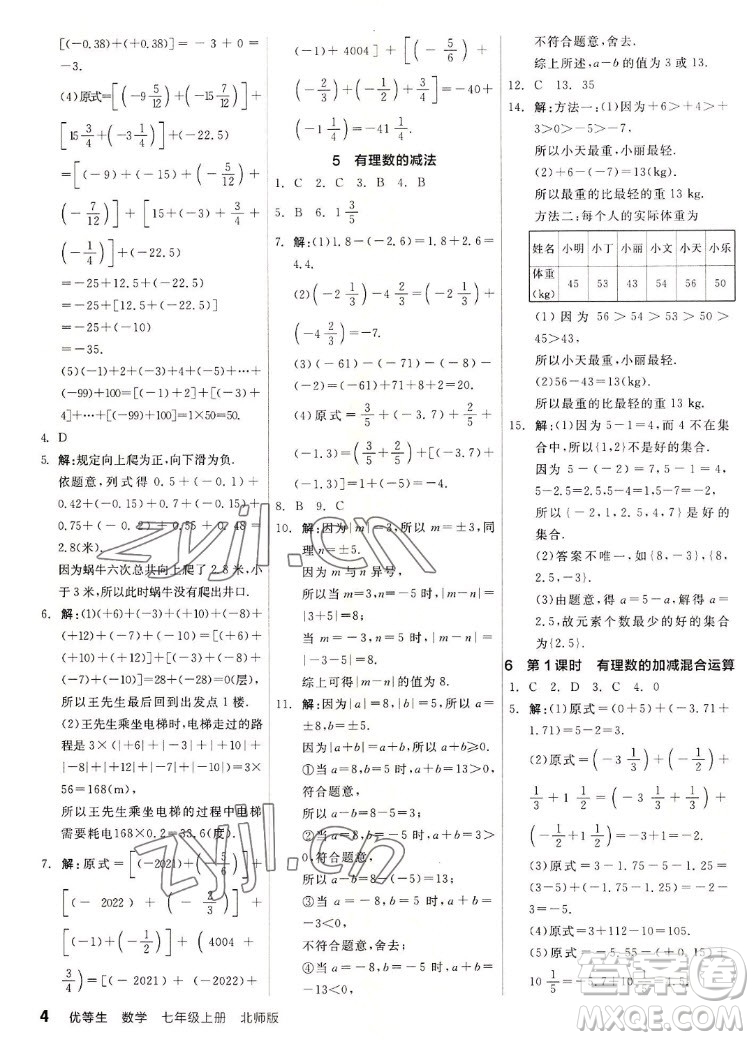 [(-0.38)+(+0.38)]=-3+0=
-3.
(4)原式=[(-9 5/12)+(-15 7/12)]+
[15 3/4+(-3 1/4)]+(-22.5)
=[(-9)+(-15)+(-5/12)+
(-7/12)]+[15+(-3)+3/4+
(-1/4)]+(-22.5)
=-25+12.5+(-22.5)
=-25+[12.5+(-22.5)]
=-25+(-10)
=-35.
(5)(-1)+2+(-3)+4+…+
(-99)+100=[(-1)+2]+[(-3)+
4]+…+[(-99)+100]=1×50=50.
4. D
5. 解:规定向上爬为正,向下滑为负.
依题意,列式得 0.5+(-0.1)+
0.42+(-0.15)+0.7+(-0.15)+
0.75+(-0.2)+0.55+0.48=
2.8(米).
因为蜗牛六次总共向上爬了2.8米,小
于3米,所以此时蜗牛没有爬出井口.
6. 解:(1)(+6)+(-3)+(+10)+(-8)+
(+12)+(-7)+(-10)=[(+6)+
(+10)+(+12)]+[(-3)+(-8)+
(-7)+(-10)]=28+(-28)=0(层),
所以王先生最后回到出发点1楼.
(2)王先生乘坐电梯时,电梯走的路
程是3×(|+6|+|-3|+|+10|+
|-8|+|+12|+|-7|+|-10|)=3×
56=168(m),
所以王先生乘坐电梯的过程中电梯
需要耗电168×0.2=33.6(度).
7. 解:原式=[(-2021)+(-5/6)]+
[(-2022)+(-2/3)]+
[(-1)+(-1/2)]+(4004+
3/4)=[(-2021)+(-2022)+
(-1)+4004]+[(-5/6)+
(-2/3)+(-1/2)+3/4]=-40+
(-1 1/4)=-41 1/4.
5 有理数的减法
1. C 2. C 3. B 4. C
5. B 6. 1 3/5
7. 解:(1)1.8-(-2.6)=1.8+2.6=
4.4.
(2)(-2 1/3)-4 2/3=(-2 1/3)+
(-4 2/3)=-7.
(3)(-61)-(-71)-|-8|-
(-2)=-61+71-8+2=20.
(4)原式=3/5+(-3.7)+2/5+
(-1.3)=(3/5+2/5)+[(-3.7)+
(-1.3)]=1+(-5)=-4.
8. B 9. C
10. 解:因为|m|=3,所以m=±3,同
理n=±5.
因为m与n异号,
所以当m=3,n=-5时,|m-n|=
|3+5|=8;
当m=-3,n=5时,|m-n|=
|-3-5|=8.
综上可得|m-n|的值为8.
11. 解:因为|a|=8,|b|=5,
所以a=±8,b=±5.
因为|a+b|=a+b,所以a+b⩾0.
①当a=8,b=5时,a+b=13>0,
符合题意,
所以a-b=8-5=3;
②当a=8,b=-5时,a+b=3>
0,符合题意,
所以a-b=8-(-5)=13;
③当a=-8,b=5时,a+b=
-3<0,
不符合题意,舍去;
④当a=-8,b=-5时,a+b=
-13<0,
不符合题意,舍去.
综上所述,a-b的值为3或13.
12. C 13. 35
14. 解:方法一:(1)因为+6>+4>+
3>0>-2>-7,
所以小天最重,小丽最轻.
(2)+6-(-7)=13(kg),
所以最重的比最轻的重13 kg.
方法二:每个人的实际体重为
姓名 小明 小丁 小丽 小文 小天 小乐
体重(kg) 45 53 43 54 56 50
(1)因为56>54>53>50>
45>43,
所以小天最重,小丽最轻.
(2)56-43=13(kg),
所以最重的比最轻的重13 kg.
15. 解:(1)因为5-1=4,而4不在集
合中,所以{1,2}不是好的集合.
因为5-1=4,5-4=1,
5-2.5=2.5,5-(-2)=7,
所以{-2,1,2.5,4,7}是好的
集合.
(2)答案不唯一,如{8,-3}或
{2.5,-3,8}.
(3)由题意,得a=5-a,解得a=
2.5,故元素个数最少的好的集合
是{2.5}.
6 第1课时 有理数的加减混合运算
1. C 2. D 3. C 4. 0
5. 解:(1)原式=(0+5)+(-3.71+
1.71)=5-2=3.
(2)原式=(-3 1/3-2/3)+
1/3+1 1/3=
(3)原式=3-1.75-5-1.25=
3-5-(1.75+1.25)=-5.
(4)原式=3-10+112=105.
(5)原式=-5.55-(+5.4)+
10 1/5-3.7+0.75=
4 优等生 数学 七年级上册 北师版
zyjl.cn
zyjl.cn
答案圈